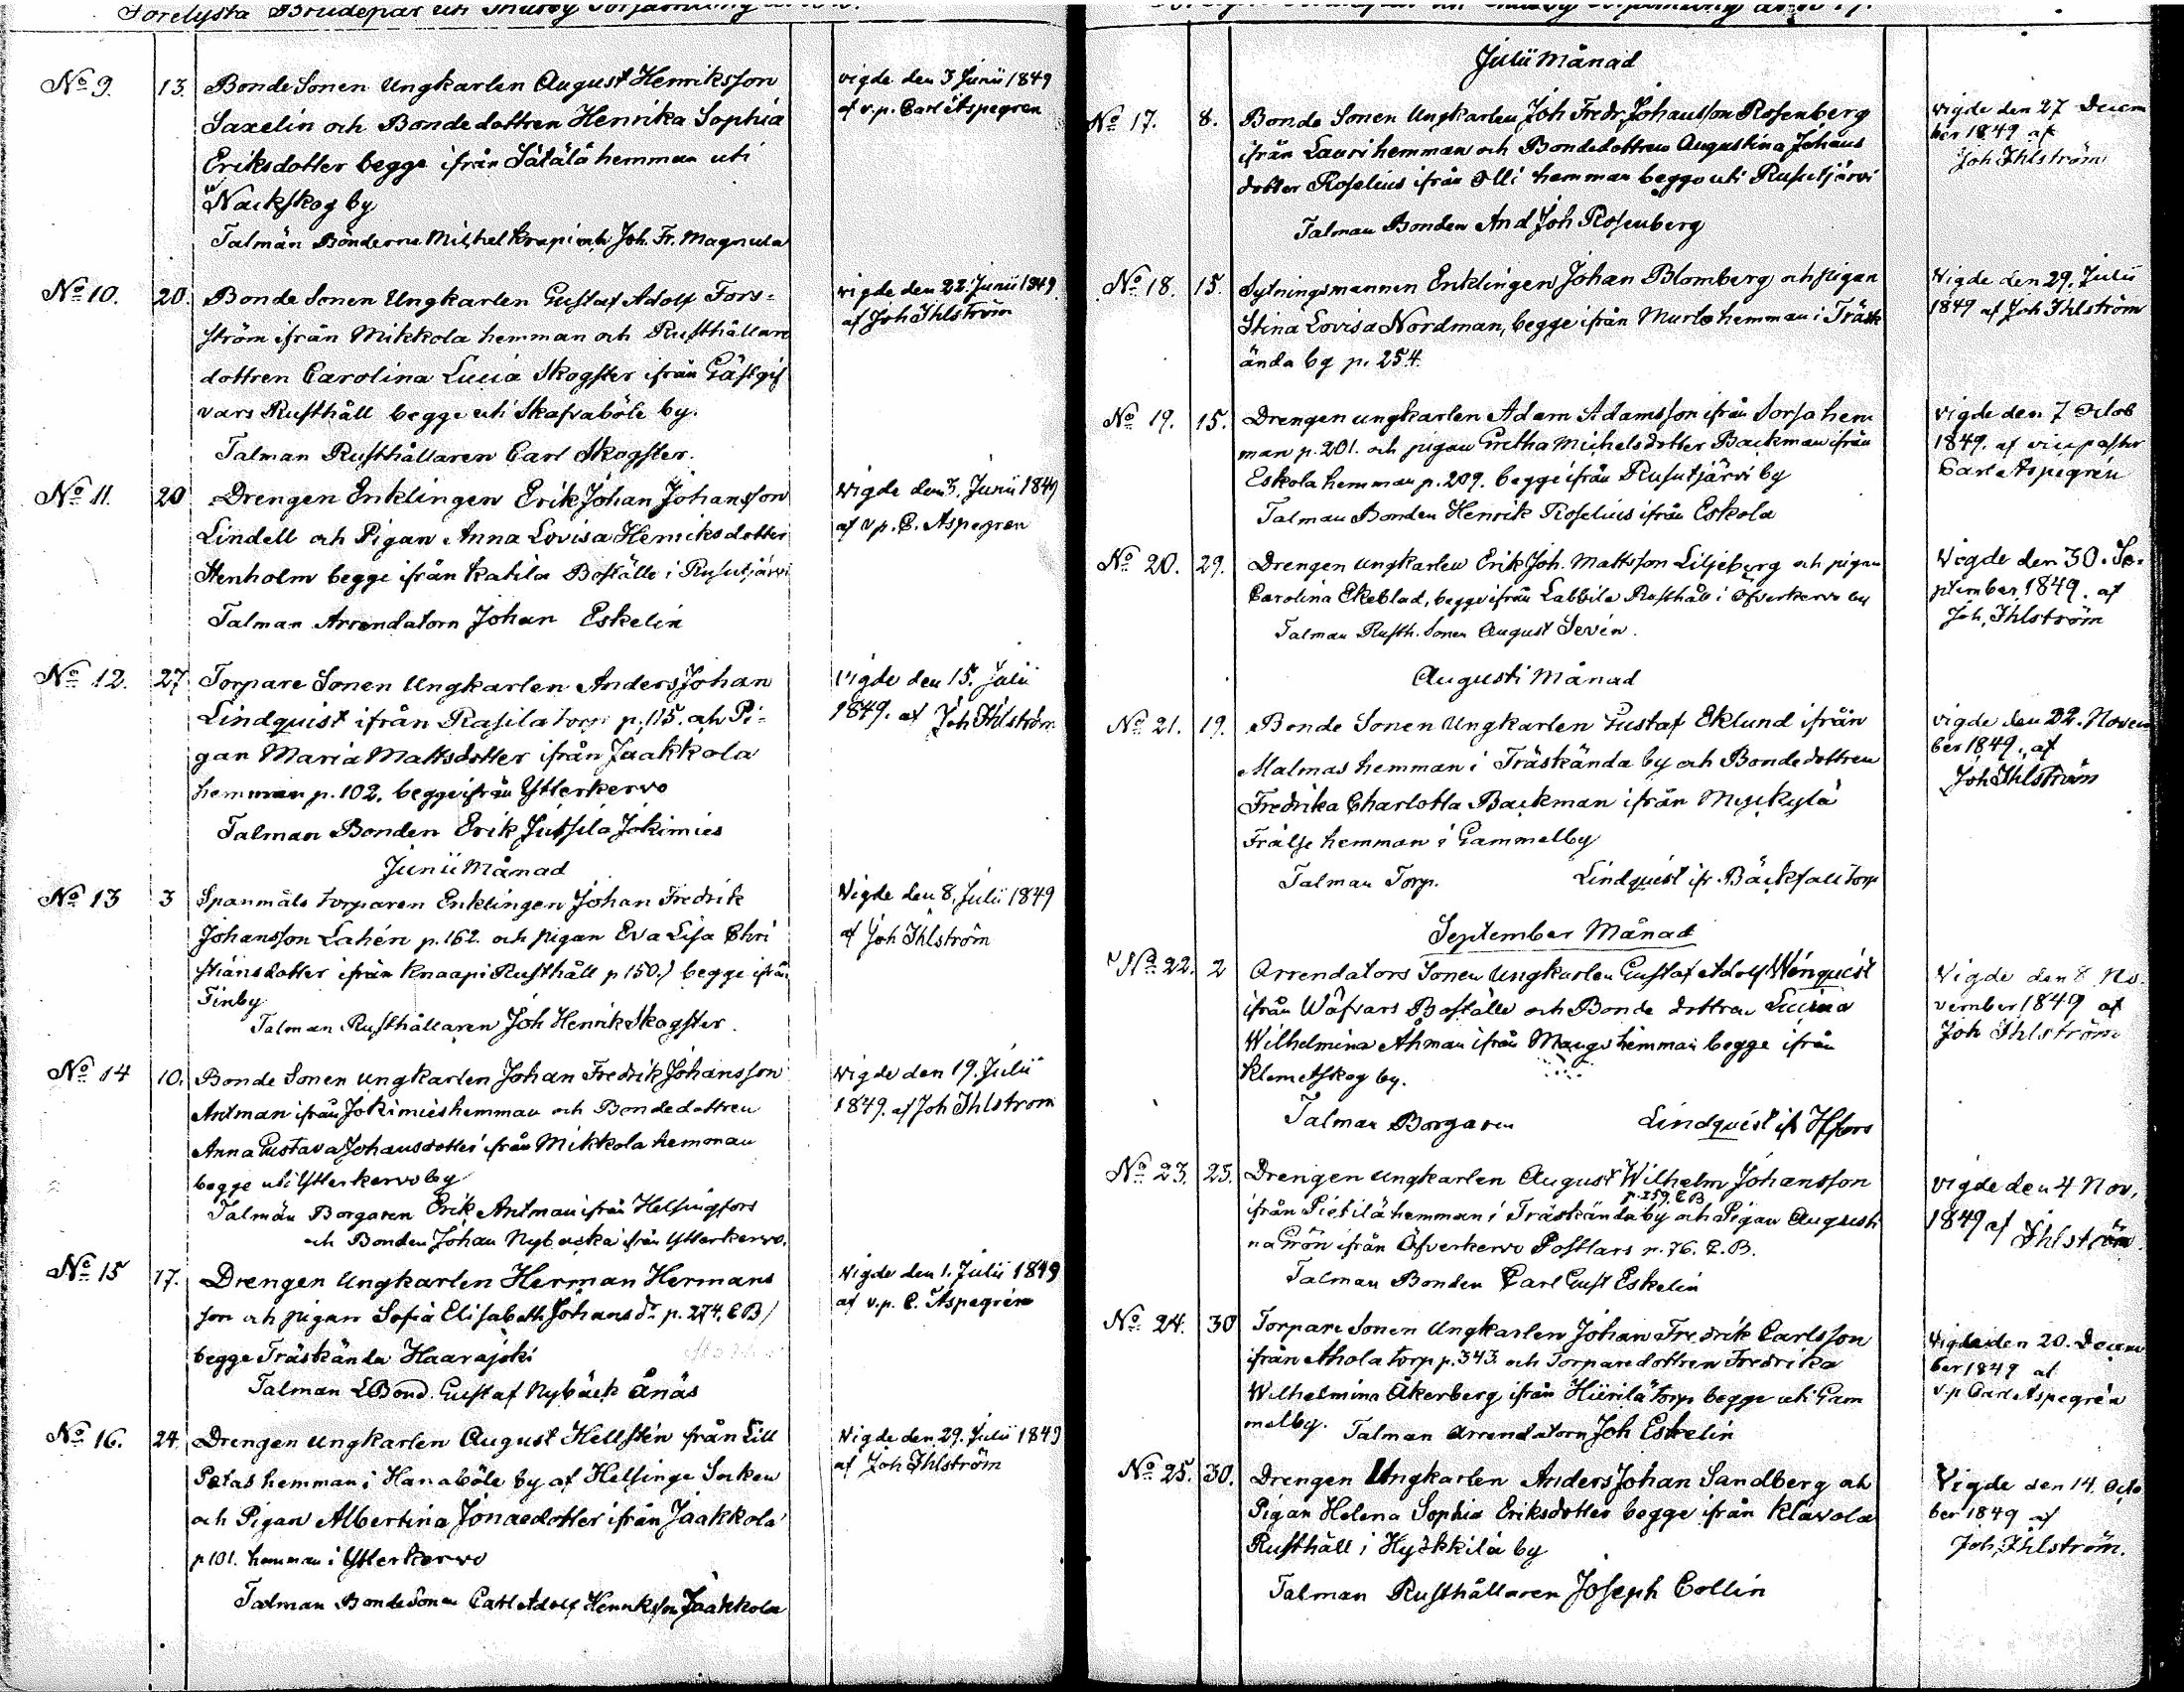 Förelysta Brudepar uti Thusby Församling
No 9. 13. Bonde Sonen Ungkarlen August Henriksson
Saxelin och Bondedottren Henrika Sophia
Eriksdotter begge ifrån Sätälä hemman uti
Nackskog by
Talmän Bönderne Michel Krapi och Joh. Fr. Magnula
vigde den 3 Junii 1849
af v.p. Carl Aspegren
No 10. 20. Bonde Sonen Ungkarlen Gustaf Adolf Fors-
ström ifrån Mikkola hemman och Rusthållare
dottren Carolina Lucia Skogster ifrån Gästgif
vars Rusthåll begge uti Skafvaböle by.
Talman Rusthållaren Carl Skogster.
vigde den 22. Junii 1849
af Joh Ihlström
No 11. 20 Drengen Enklingen Erik Johan Johansson
Lindell och Pigan Anna Lovisa Henricksdotter
Stenholm begge ifrån Katila Boställe i Rusutjärvi
Talman Arrendatorn Johan Eskelin
Vigde den 3. Junii 1849
af v.p. C. Aspegren
No 12. 27 Torpare Sonen Ungkarlen Anders Johan
Lindquist ifrån Rasila torp p. 115. och Pi-
gan Maria Mattsdotter ifrån Jaakkola
hemman p. 102. begge ifrån Ytterkervo
Talman Bonden Erik Jutsila Jokimies
Vigde den 15. Julii
1849. af Joh Ihlström
Junii Månad
No 13 3 Spanmåls torparen Enklingen Johan Fredrik
Johansson Lahén p. 162. och pigan Eva Lisa Chri
stiansdotter ifrån Knaapi Rusthåll p 150.) begge ifrån
Finby
Talman Rusthållaren Joh Henrik Skogster.
Vigde den 8. Julii 1849
af Joh Ihlström
No 14 10. Bonde Sonen Ungkarlen Johan Fredrik Johansson
Antman ifrån Jokimies hemman och Bondedottren
Anna Gustava Johansdotter ifrån Mikkola hemman
begge uti Ytterkervo by
Talmän Borgaren Erik Antman ifrån Helsingfors
och Bonden Johan Nybacka ifrån Ytterkervo.
Vigde den 19. Julii
1849. af Joh Ihlström
No 15 17. Drengen Ungkarlen Herman Hermans
son och pigan Sofia Elisabeth Johansdr p. 274. C B)
begge Träskända Haarajoki
Talman LBond. Gustaf Nybäck Ånäs
Vigde den 1. Julii 1849
af v.p. C. Aspegrén
No 16. 24. Drengen Ungkarlen August Hellstén från Lill
Petas hemman i Hanaböle by af Helsinge Socken
och Pigan Albertina Jonaedotter ifrån Jaakkola
p 101. hemman i Ytterkervo
Talman Bonde Sonen Carl Adolf Henriksson Jaakkola
Vigde den 29. Julii 1849
af Joh Ihlström
Julii Månad
No 17. 8. Bonde Sonen Ungkarlen Joh Fredr. Johansson Rosenberg
ifrån Lauri hemman och Bondedottren Augustina Johans
dotter Roselius ifrån Olli hemman begge uti Rusutjärvi
Talman Bonden And Joh Rosenberg
Vigde den 27 Decem
ber 1849 af
Joh Ihlström
No 18. 15. Sytningsmannen Enklingen Johan Blomberg och pigan
Stina Lovisa Nordman, begge ifrån Murto hemman i Träsk
ända by p. 254.
Vigde den 29. Julii
1849 af Joh Ihlström
No 19. 15. Drengen ungkarlen Adam Adamsson ifrån Sorsa hem
man p. 201. och pigan Gretha Michelsdotter Backman ifrån
Eskola hemman p. 209. begge ifrån Rusutjärvi by
Talman Bonden Henrik Roselius ifrån Eskola
Vigde den 7 Octob
1849. af vice pastor
Carl Aspegrén
No 20. 29. Drengen ungkarlen Erik Joh. Mattsson Liljeberg och pigan
Carolina Ekeblad, begge ifrån Labbila Rusthåll i Öfverkervo by
Talman Rusth. Sonen August Sevén.
Vigde den 30. Se-
ptember 1849. af
Joh. Ihlström
Augusti Månad
No 21. 19. Bonde Sonen Ungkarlen Gustaf Eklund ifrån
Malmas hemman i Träskända by och Bondedottren
Fredrika Charlotta Backman ifrån Myckylä
Frälse hemman i Gammelby
Talman Torp. Lindquist ifr. Bäcksall torp
vigde den 22. Novem
ber 1849. af
Joh Ihlström
September Månad
No 22. 2 Arrendators Sonen Ungkarlen Gustaf Adolf Wénquist
ifrån Wäfvars Boställe och Bonde dottren Lucina
Wilhelmina Åhman ifrån Mangs hemman begge ifrån
Klemetskog by.
Talman Borgaren Lindquist ifr Hfors
Vigde den 8 No-
vember 1849 af
Joh Ihlström
No 23. 25. Drengen Ungkarlen August Wilhelm Johansson
p. 259. C B
ifrån Pietilä hemman i Träskända by och Pigan Augusti
na Grön ifrån Öfverkervo Postlars p. 76. C. B.
Talman Bonden Carl Gust Eskelin
Vigde den 4 Nov.
1849 af Ihlström
No 24. 30 Torpare Sonen Ungkarlen Johan Fredrik Carlsson
ifrån Ahola torp p. 343. och Torparedottren Fredrika
Wilhelmina Åkerberg ifrån Hiirilä torp begge uti Gam
melby. Talman Arrendatorn Joh Eskelin
Vigde den 20. Decem
ber 1849 af
v.p Carl Aspegrén
No 25. 30. Drengen Ungkarlen Anders Johan Sandberg och
Pigan Helena Sophia Eriksdotter begge ifrån Klavola
Rusthåll i Hyökkilä by
Talman Rusthållaren Joseph Collin
Vigde den 14. Octo
ber 1849 af
Joh. Ihlström.